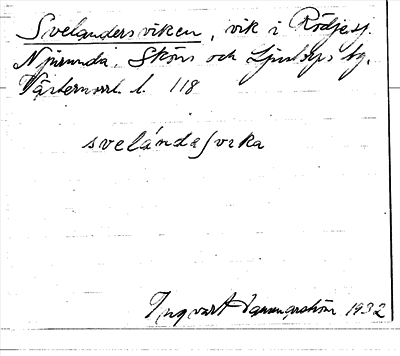 Svelandersviken, vik i Rödjesj.
Njurunda, Sköns och Ljustorps tg.
Västernorrl. l. 118
svelándaʃvika
Ingvar Hammarström 1932